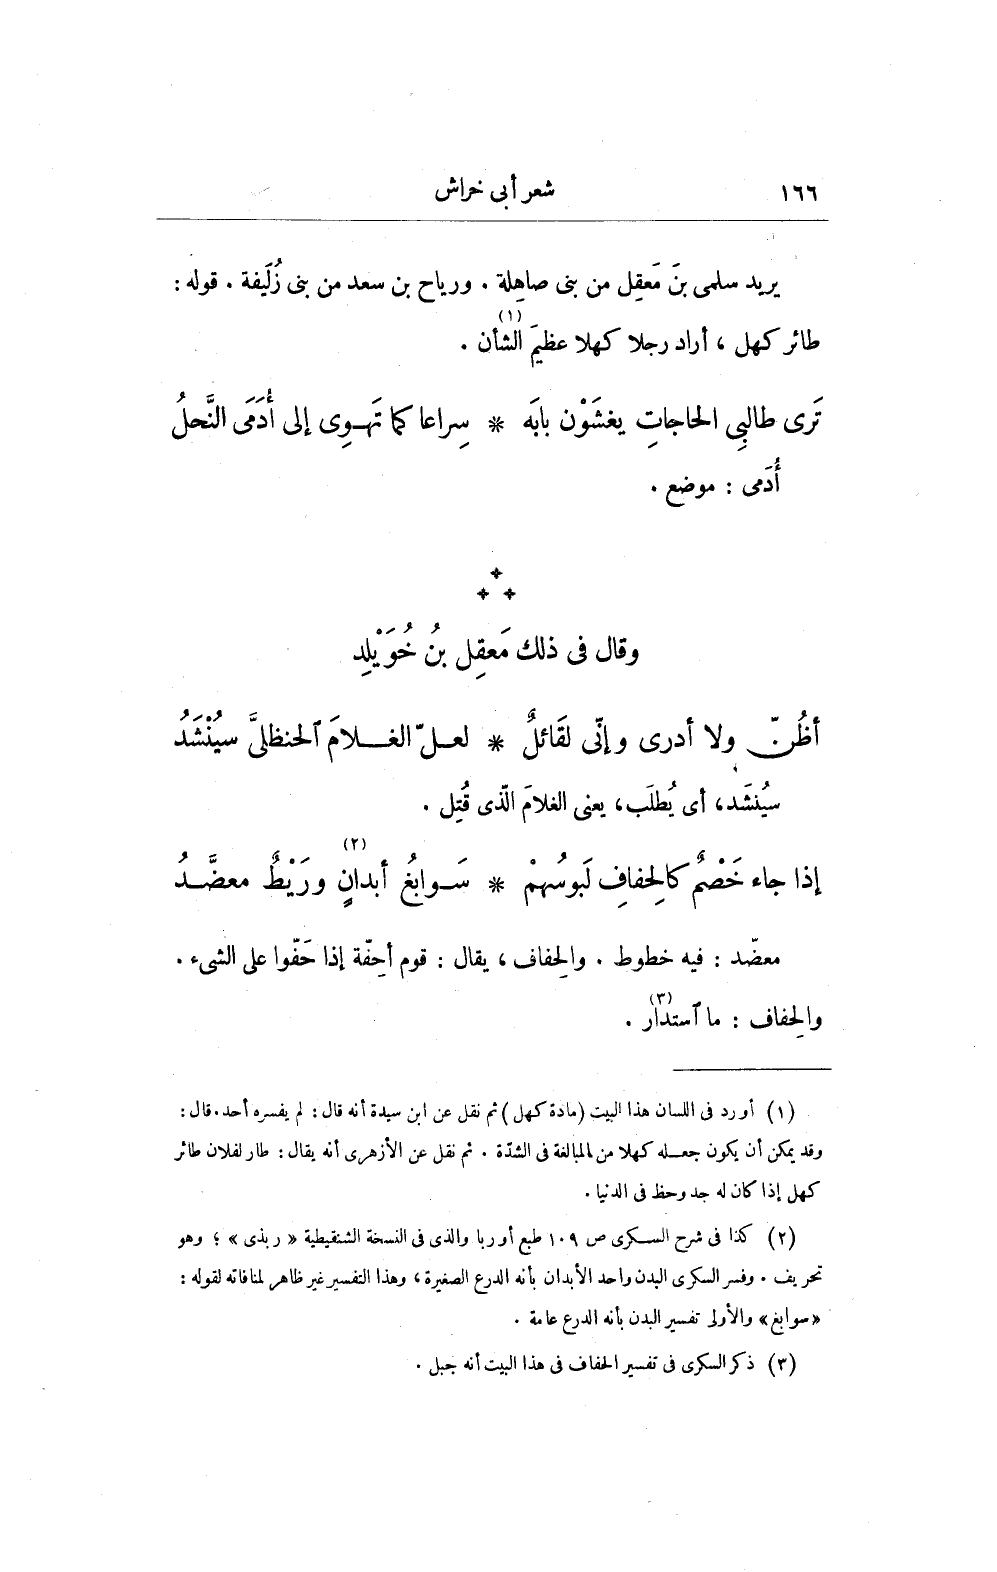 ١٦٦ شعر أبى خراش
يريد سلمى بنَ مَعقِل من بنى صاهِلة . ورياح بن سعد من بنى زُلَيفة . قوله :
طائر كهل ، أراد رجلا كهلا عظيمَ الشأن (١) .
تَرى طالبِى الحاجاتِ يغشَوْن بابَه * سِراعا كما تَهـوِى إلى أُدَمَى النَّحلُ
أُدَمى : موضع .
وقال فى ذلك مَعقِل بنُ خُوَيْلِد
أظُنّ ولا أدرى وإنّى لقَائلٌ * لعـلّ الغـلامَ ٱلحنظلىَّ سيُنْشَدُ
سيُنشَد، أى يُطلَب، يعنى الغلامَ الّذى قُتِل .
إذا جاء خَصْمٌ كالحِفافِ لَبوسُهمْ * سَـوابغُ أبدانٍ (٢) ورَيْطٌ معضَّـدُ
معضّد : فيه خطوط . والحِفاف ، يقال : قوم أحِفّة إذا حَفّوا على الشىء .
والحِفاف : ما ٱستدار (٣) .
(١) أورد فى اللسان هذا البيت (مادة كهل) ثم نقل عن ابن سيدة أنه قال : لم يفسره أحد. قال :
وقد يمكن أن يكون جعـله كهلا من المبالغة فى الشدّة . ثم نقل عن الأزهرى أنه يقال : طار لفلان طائر
كهل إذا كان له جد وحظ فى الدنيا .
(٢) كذا فى شرح السكرى ص ١٠٩ طبع أوربا والذى فى النسخة الشنقيطية « ربذى » ؛ وهو
تحريف . وفسر السكرى البدن واحد الأبدان بأنه الدرع الصغيرة ، وهذا التفسير غير ظاهر لمنافاته لقوله :
«سوابغ» والأولى تفسير البدن بأنه الدرع عامة .
(٣) ذكر السكرى فى تفسير الحفاف فى هذا البيت أنه جبل .